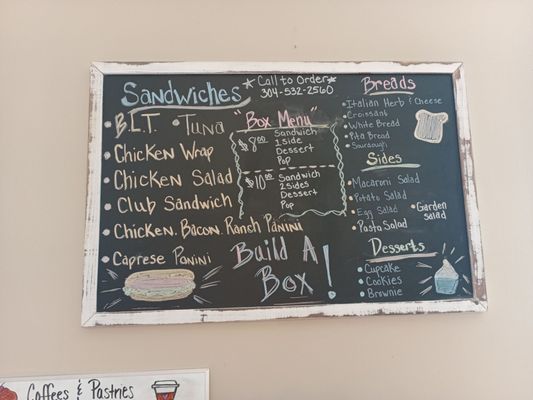 Sandwiches
B.L.T.
Tuna
Chicken Wrap
Chicken Salad
Club Sandwich
Chicken. Bacon. Ranch Panini
Caprese Panini
Call to Order
304-532-2560
"Box Menu"
$8.00 Sandwich
1 side
Dessert
Pop
$10.00 Sandwich
2 sides
Dessert
Pop
Build A
Box!
Breads
Italian Herb & Cheese
Croissant
White Bread
Pita Bread
Sourdough
Sides
Macaroni Salad
Potato Salad
Egg Salad
Garden
salad
Pasta Salad
Desserts
Cupcake
Cookies
Brownie
Coffees & Pastries